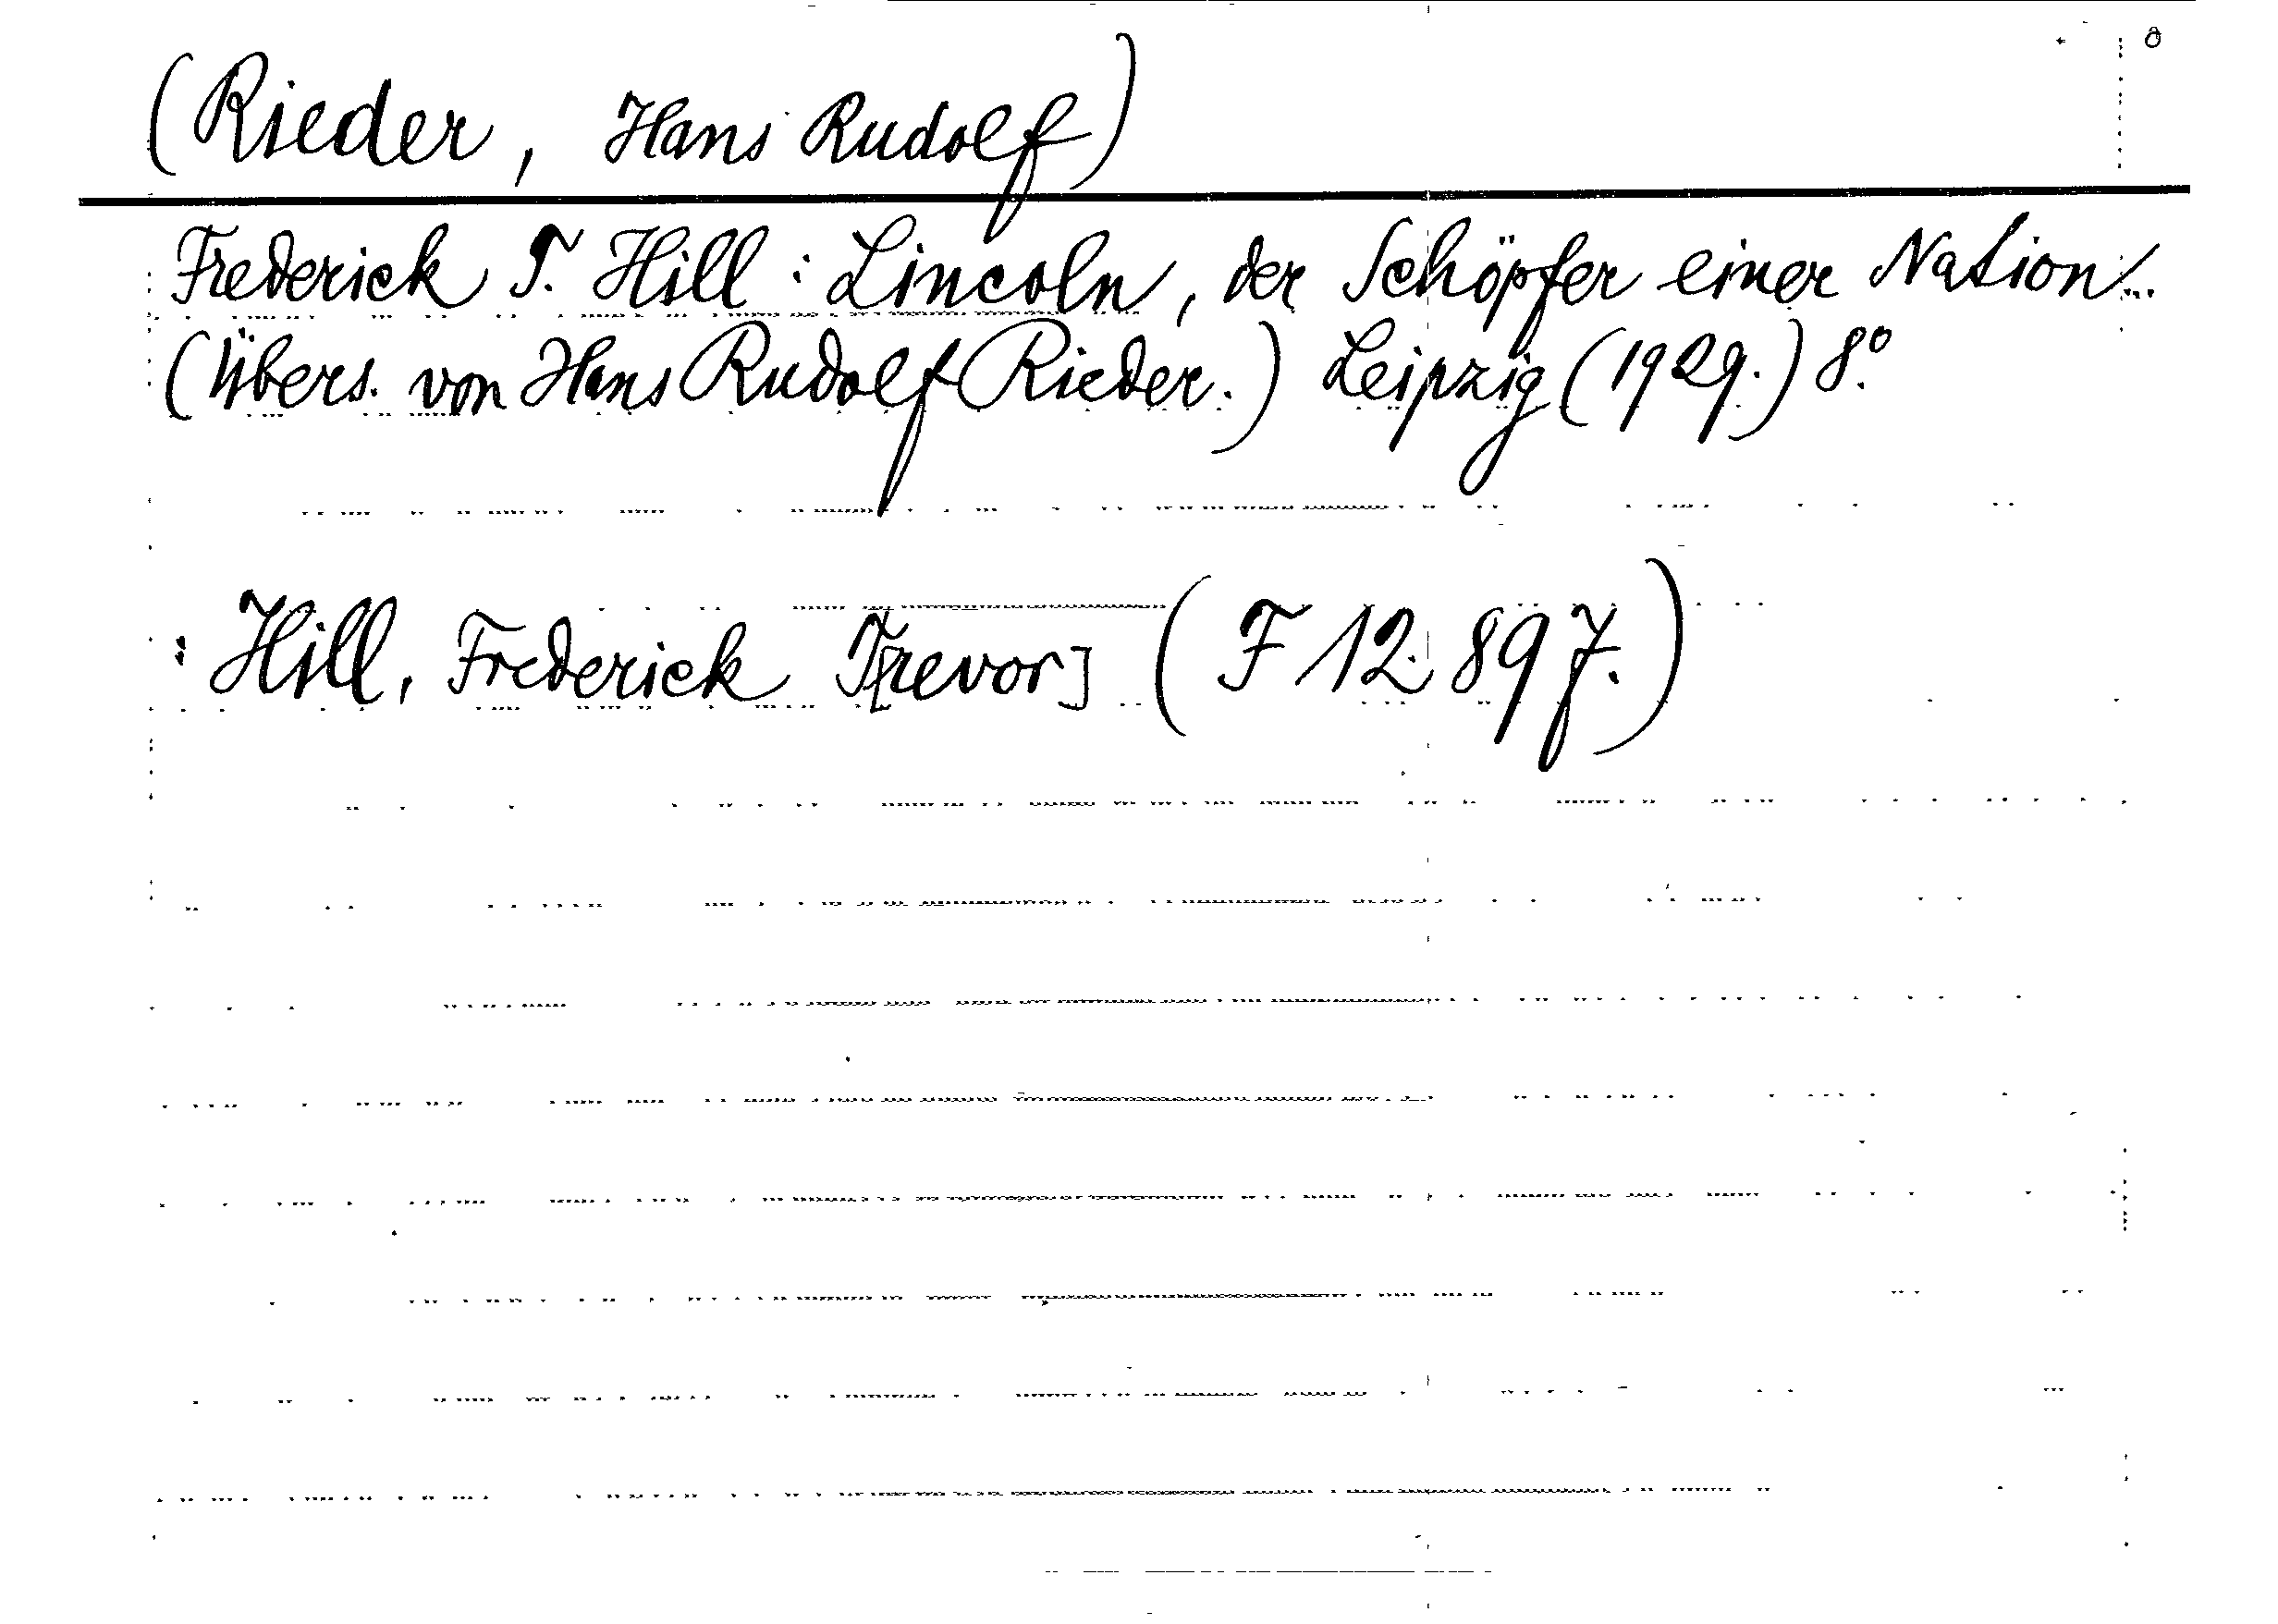 (Rieder, Hans Rudolf)
Frederick T. Hill: Lincoln, der Schöpfer einer Nation...
(Übers. von Hans Rudolf Rieder.) Leipzig (1929.) 8.°
: Hill, Frederick T[revor] (F 12.897.)